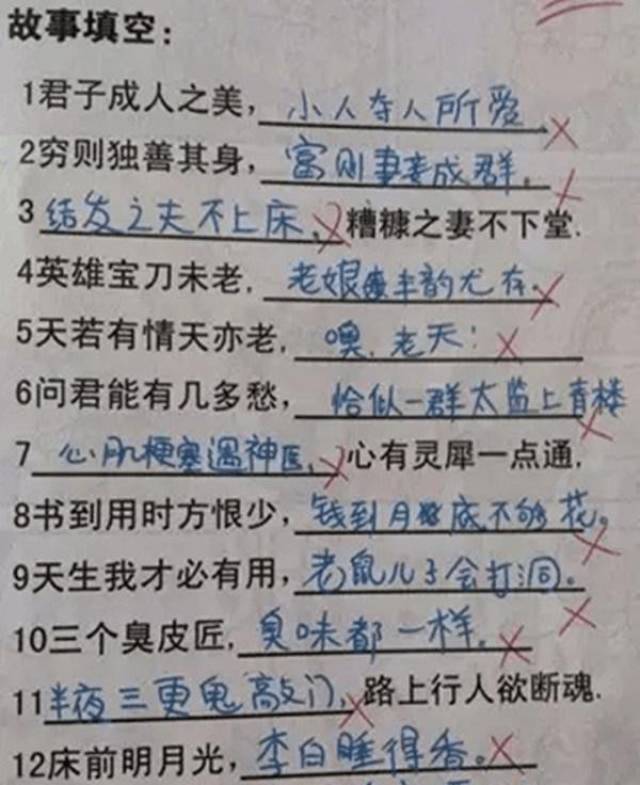 故事填空：
1君子成人之美，小人夺人所爱
2穷则独善其身，富则妻妾成群。
3结发之夫不上床，糟糠之妻不下堂.
4英雄宝刀未老，老娘丰韵尤存.
5天若有情天亦老，噢，老天！
6问君能有几多愁，恰似一群太监上青楼
7心肌梗塞遇神医，心有灵犀一点通，
8书到用时方恨少，钱到月底不够花。
9天生我才必有用，老鼠儿子会打洞。
10三个臭皮匠，臭味都一样.
11半夜三更鬼敲门，路上行人欲断魂.
12床前明月光，李白睡得香。